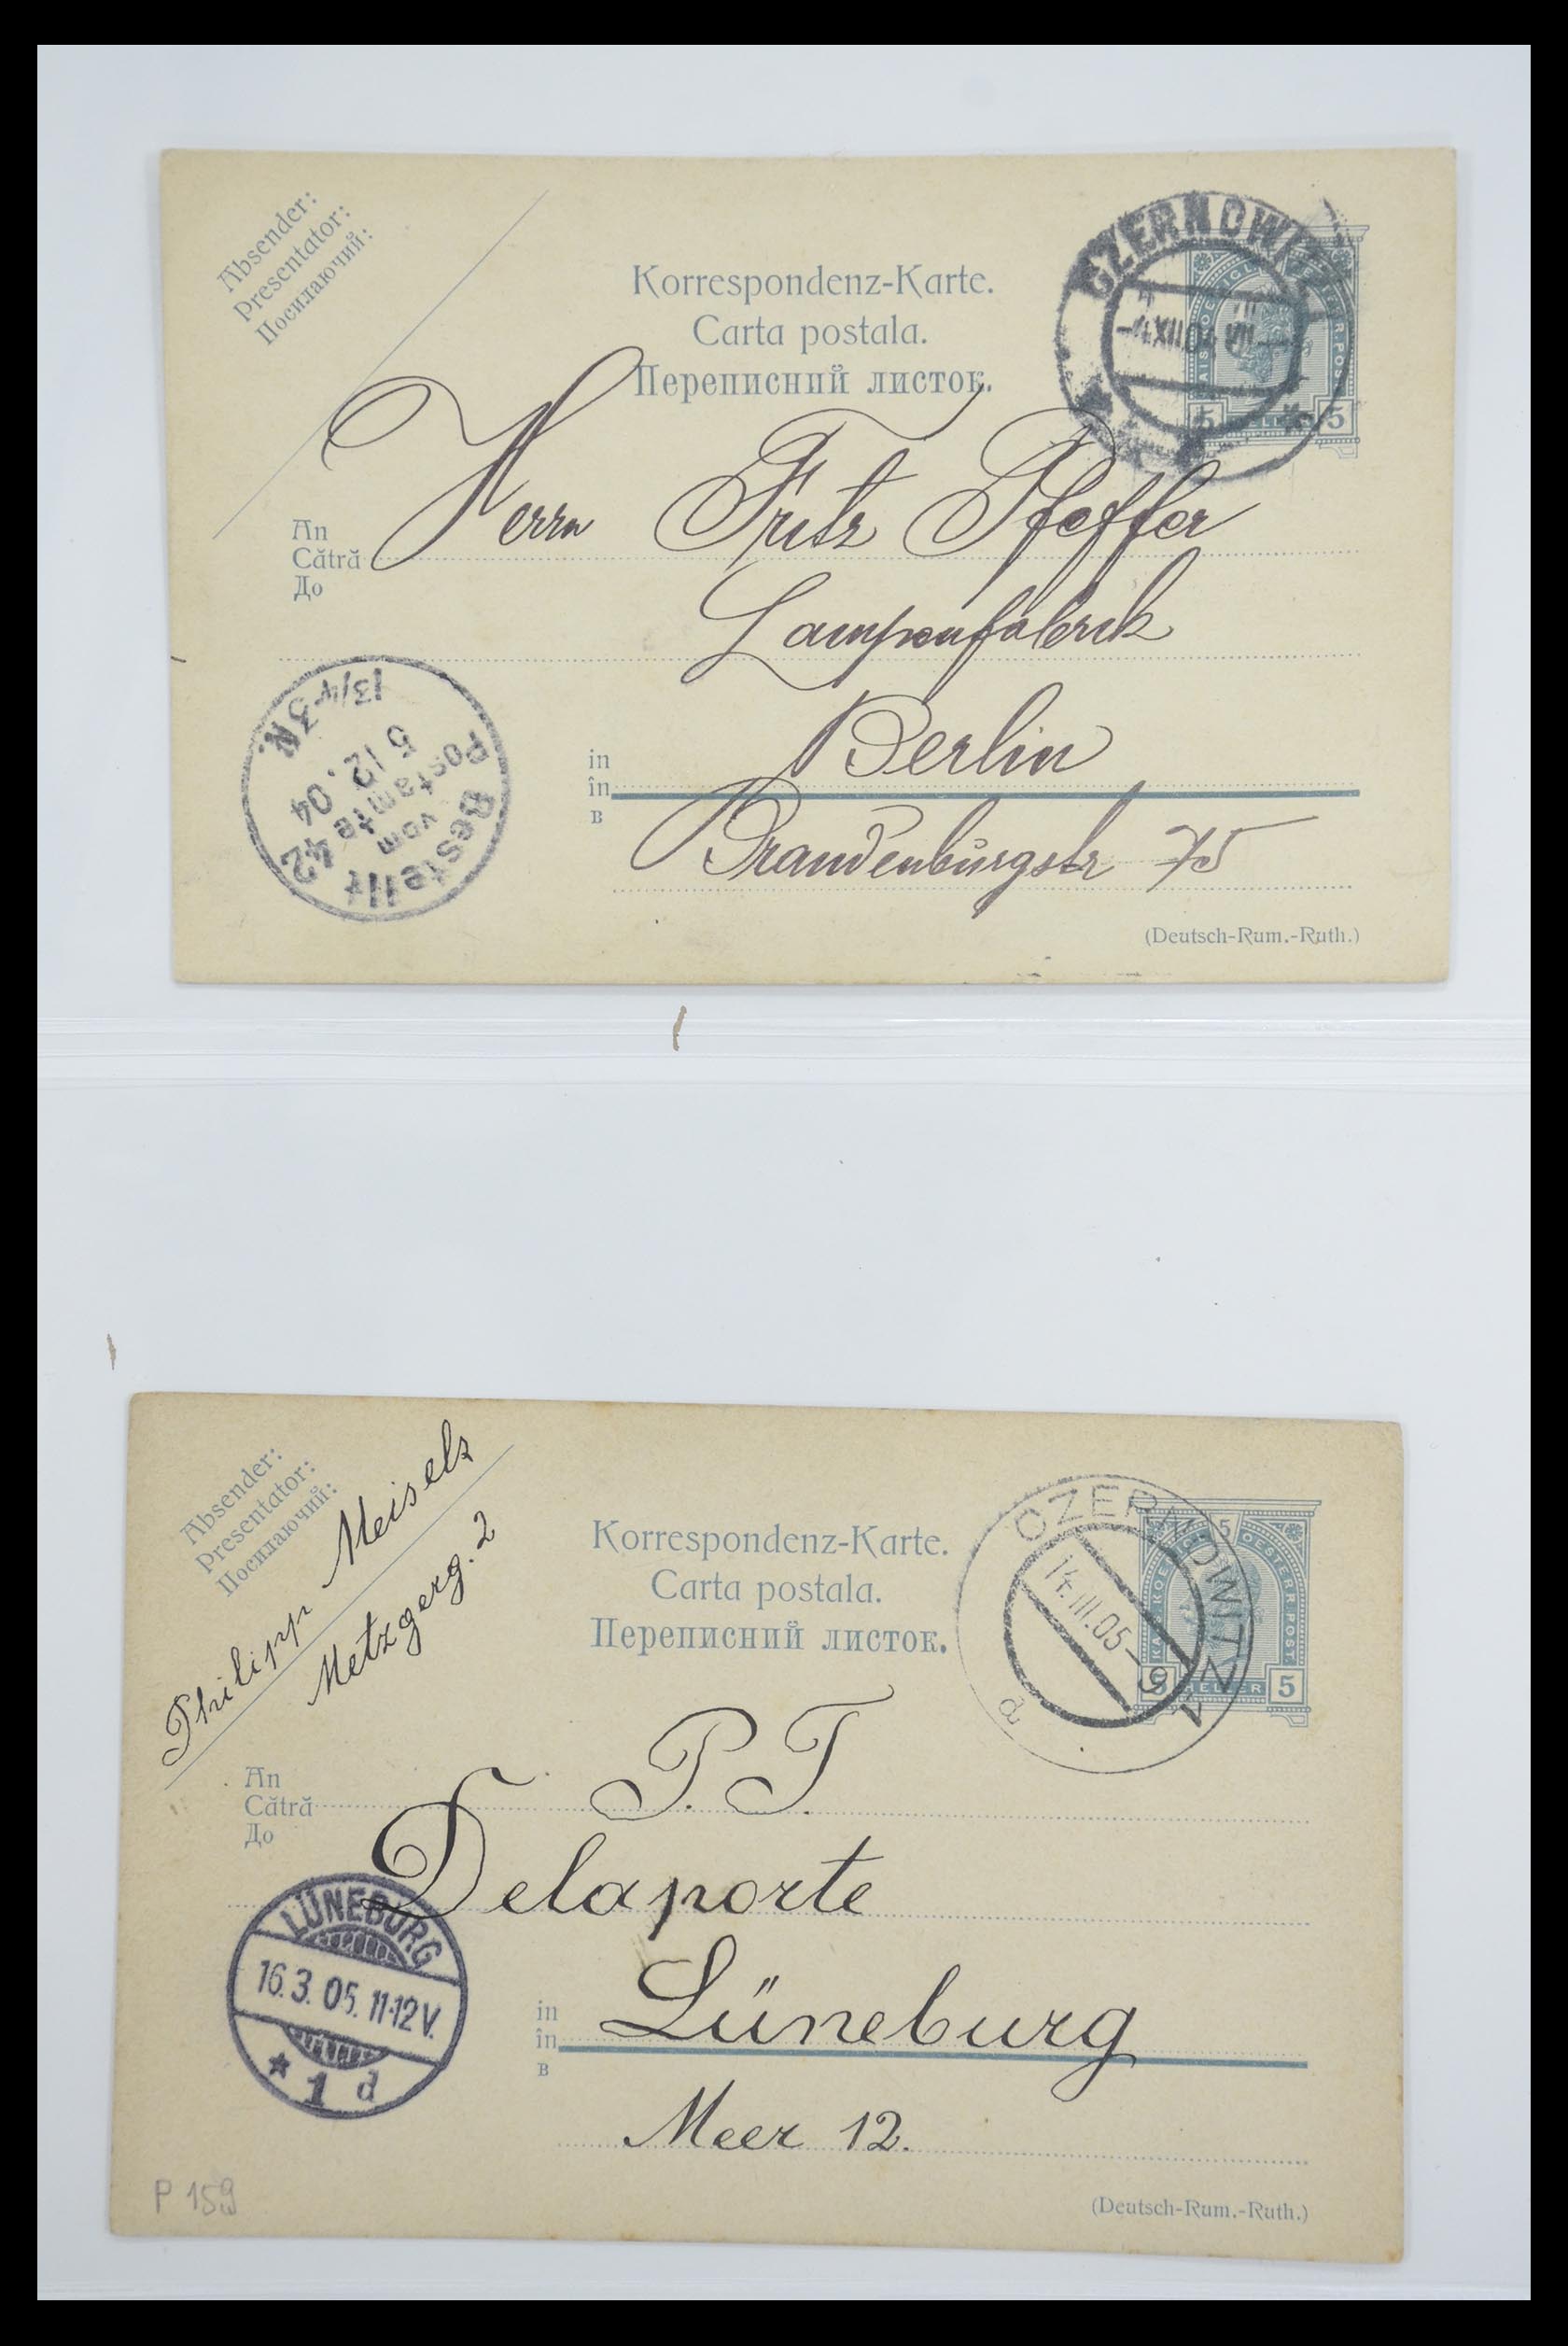 Absender:
Presentator:
Посилаючий:
Korrespondenz-Karte.
Carta postala.
Переписний листок.
CZERNOWITZ
4 XII 04 VII
5 5
An
Cătră
До
Herrn Fritz Pfeffer
Lampenfabrik
in
în
в
Berlin
Brandenburgstr 75
(Deutsch-Rum.-Ruth.)
Bestellt
vom
Postamte 42
5 12. 04
1 3/4-3N.
Absender:
Presentator:
Посилаючий:
Philipp Meisels
Metzgerg. 2
Korrespondenz-Karte.
Carta postala.
Переписний листок.
CZERNOWITZ 1
14.III.05-9
a
5
KAIS. KOENIGL. OESTERR. POST
5 HELLER 5
An
Cătră
До
P. T.
Delaporte
in
în
в
Lüneburg
Meer 12.
LÜNEBURG
16.3.05. 11-12V.
* 1 d
P 159
(Deutsch-Rum.-Ruth.)